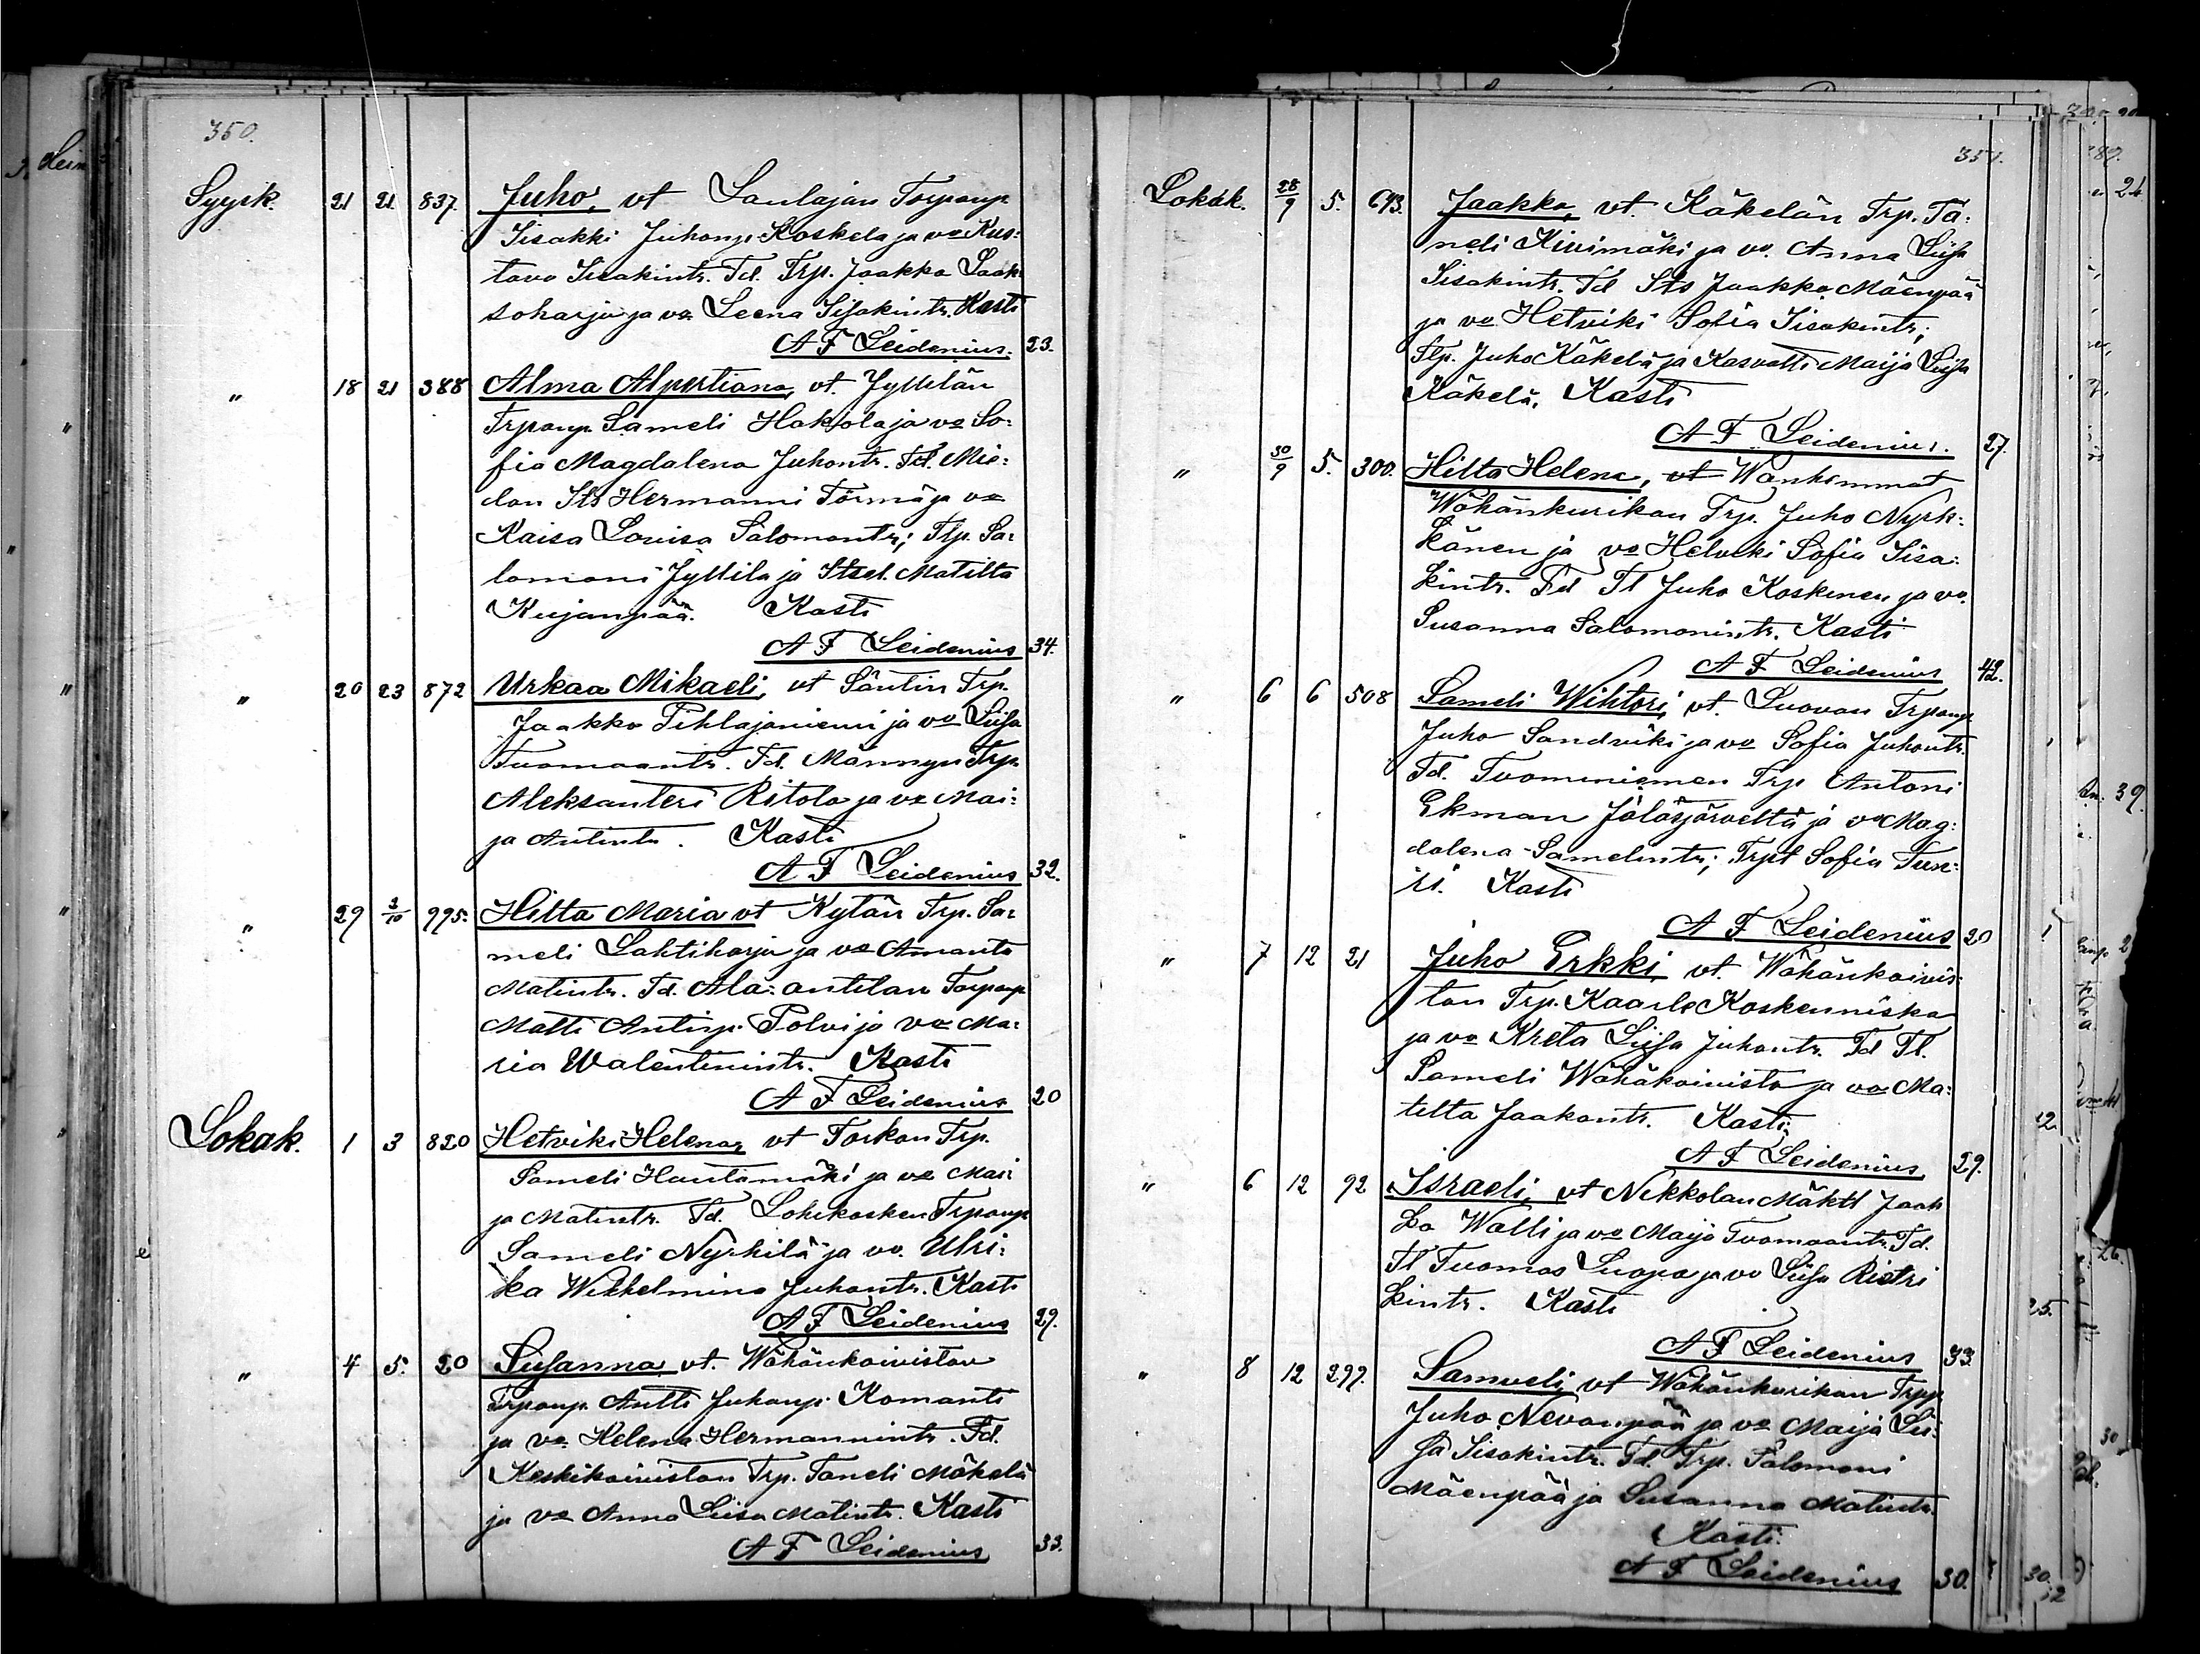 350.
Syysk. 21 21 837. Juho, vt Laulajan Torpanp
Iisakki Juhonp. Koskela ja vo Kus:
tava Iisakintr. Td. Trp. Jaakko Laak
soharju ja vo Leena Iisakintr. Kasti
A F Leidenius. 23.
" 18 21 388 Alma Alpertiana, vt. Jyllilän
Trpanp. Sameli Hakola ja vo So:
fia Magdalena Juhontr. Td. Mie:
don Its Hermanni Törmä ja vo
Kaisa Lovisa Salomontr; Tlp. Sa:
lomoni Jyllilä ja Itsel. Matilta
Kujanpää. Kasti
A F Leidenius 34.
" 20 23 872 Urkaa Mikaeli, vt Säntin Trp.
Jaakko Pihlajaniemi ja vo Liisa
Tuomaantr. Td. Männyn Trp.
Aleksanteri Ritola ja vo Mai:
ja Antintr. Kasti
A F Leidenius 32.
" 29 2/10 995. Hilta Maria vt Kytän Trp. Sa:
meli Lahtiharju ja vo Amanta
Matintr. Td. Ala-antilan Torpanp
Matti Antinp. Polvi ja vo Ma:
ria Walentinintr. Kasti
A F Leidenius 20
Lokak. 1 3 820 Hetviki Helena, vt Torkon Trp.
Sameli Hautamäki ja vo Mai:
ja Matintr. Td. Lohikosken Trpanp
Sameli Nyrhilä ja vo. Ulri:
ka Wilhelmina Juhontr. Kasti
A F Leidenius 29.
" 4 5. 20 Susanna, vt. Wähänkoiviston
Trpanp. Antti Juhanp. Komanti
ja vo. Helena Hermannintr. Td.
Keskikoiviston Trp. Taneli Mäkelä
ja vo Anna Liisa Matintr. Kasti
A F Leidenius 33.
351.
Lokak. 28/9 5. 693. Jaakko, vt. Käkelän Trp. Ta:
neli Kivimäki ja vo. Anna Liisa
Iisakintr. Td Its Jaakko Mäenpää
ja vo Hetviki Sofia Iisakintr;
Tlp. Juho Käkelä ja Kasvatti Maija Liisa
Käkelä. Kasti
A F Leidenius. 27.
" 30/9 5. 300. Hilta Helena, vt Wanhimmat
Wähänkurikan Trp. Juho Nyrk:
känen ja vo Helviki Sofia Iisa:
kintr. Td Tl Juho Koskinen ja vo.
Susanna Salomonintr. Kasti
A F Leidenius 42.
" 6 6 508 Sameli Wihtori, vt. Luovan Trpanp
Juho Sandviki ja vo Sofia Juhontr.
Td. Tuominiemen Trp Antoni
Ekman Jalasjärveltä ja vo Mag:
dalena Samelintr; Trpt Sofia Tun:
ti. Kasti
A F Leidenius 20
" 7 12 21 Juho Erkki, vt. Wähänkoivis:
ton Trp. Kaarlo Koskenniska
ja vo Kreta Liisa Juhontr. Td Tl.
Sameli Wähäkoivisto ja vo Ma:
tilta Jaakontr. Kasti.
A F Leidenius 29.
" 6 12 92 Israeli, vt Nikkolan Mäktl Jaak
ko Walli ja vo Maija Tuomaantr. Td.
Tl Tuomas Luopa ja vo Liisa Ristri
kintr. Kasti
A F Leidenius 33.
" 8 12 297. Samueli, vt Wähänkurikan Trpp
Juho Nevanpää ja vo Maija Lii:
sa Iisakintr. Td. Trp. Salomoni
Mäenpää ja Susanna Matintr.
Kasti.
A F Leidenius 30.